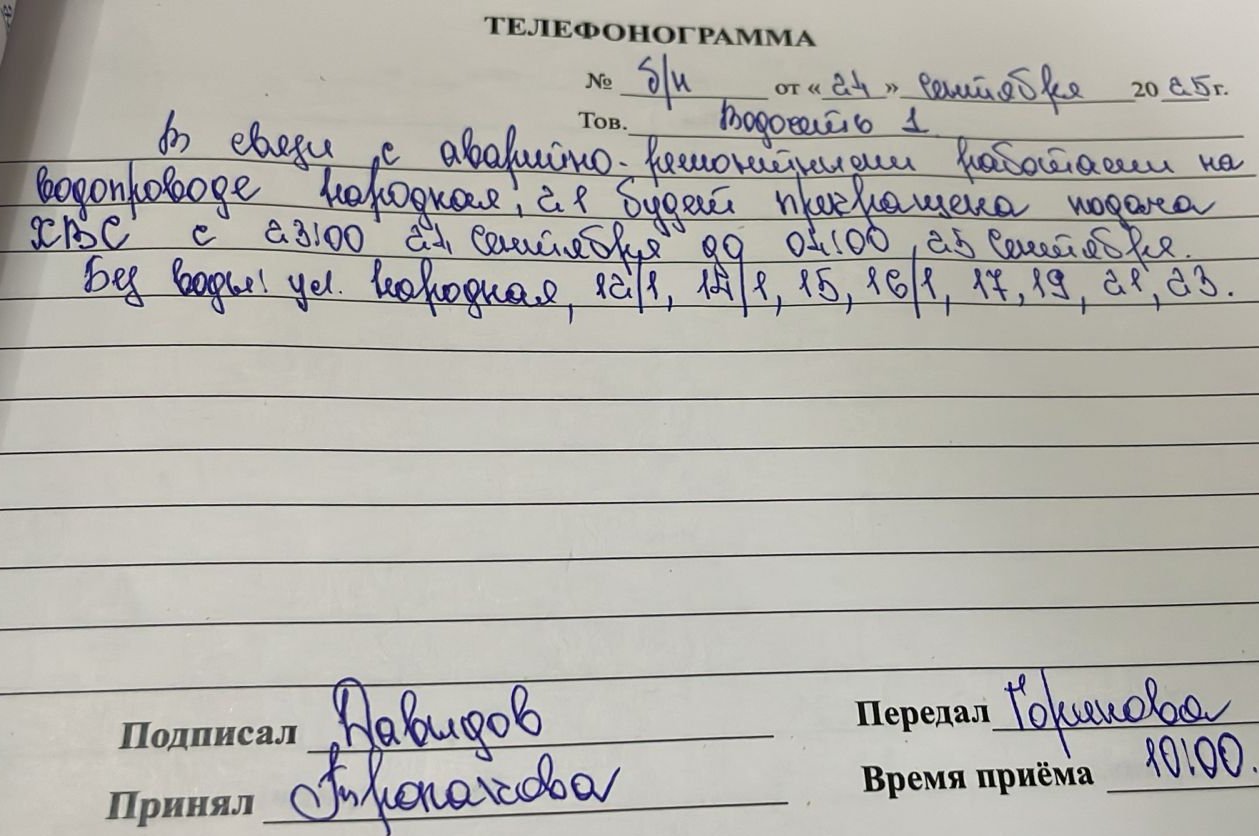 ТЕЛЕФОНОГРАММА
№ б/н от «24» сентября 2025г.
Тов. Водосеть 1
В связи с аварийно-ремонтными работами на
водопроводе Народная, 21 будет прекращена подача
ХВС с 23:00 24 сентября до 04:00 25 сентября.
Без воды: ул. Народная, 12/1, 14/1, 15, 16/1, 17, 19, 21, 23.
Подписал Давидов Передал
Принял Время приёма 10:00.